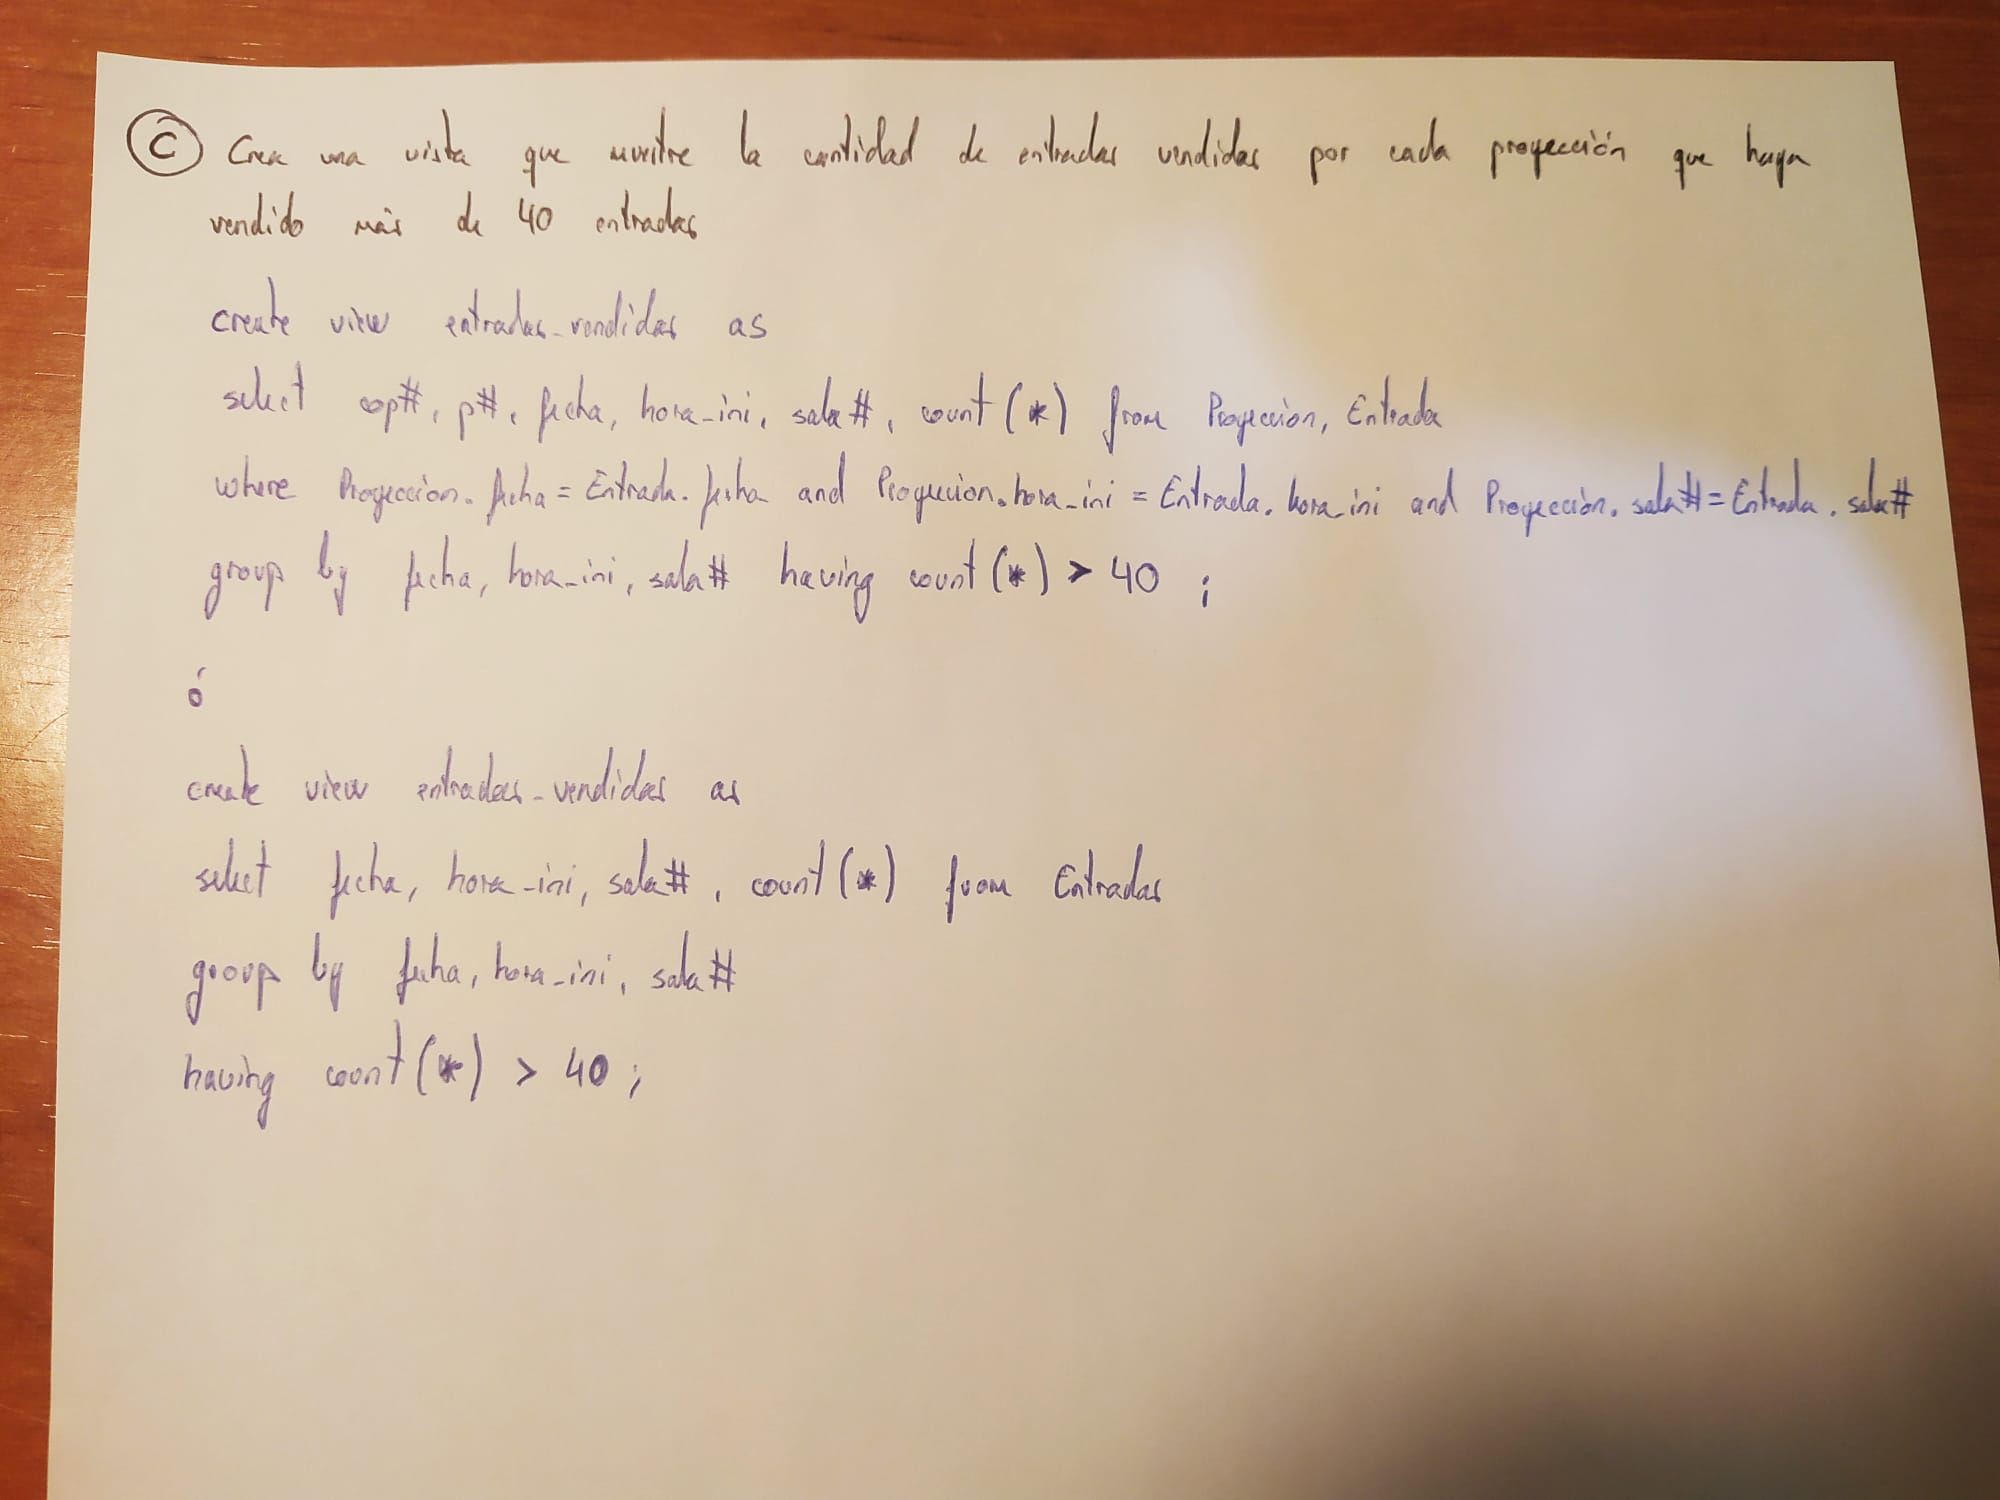 C Crea una vista que muestre la cantidad de entradas vendidas por cada proyección que haya
vendido más de 40 entradas
create view entradas_vendidas as
select cop#, p#, fecha, hora_ini, sala#, count(*) from Proyeccion, Entrada
where Proyeccion.fecha = Entrada.fecha and Proyeccion.hora_ini = Entrada.hora_ini and Proyección.sala# = Entrada.sala#
group by fecha, hora_ini, sala# having count(*) > 40 ;
ó
create view entradas_vendidas as
select fecha, hora_ini, sala#, count(*) from Entradas
group by fecha, hora_ini, sala#
having count(*) > 40 ;